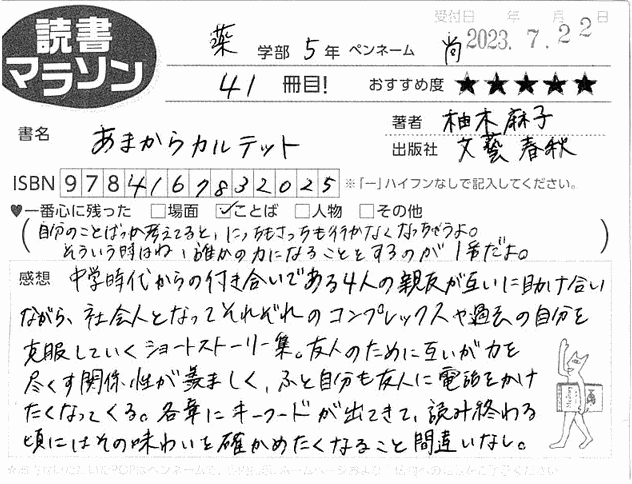 受付日 年 月 日
2023.7.22
読書
マラソン
薬 学部 5 年 ペンネーム 尚
41 冊目! おすすめ度 ★★★★★
書名 あまからカルテット
著者 柚木麻子
出版社 文藝春秋
ISBN 9784167832025 ※「-」ハイフンなしで記入してください。
♥一番心に残った □場面 ☑ことば □人物 □その他
(自分のことばっか考えてると、にっちもさっちも行かなくなっちゃうよ。
そういう時はね、誰かの力になることをするのが1番だよ。)
感想 中学時代からの付き合いである4人の親友が互いに助け合い
ながら、社会人となってそれぞれのコンプレックスや過去の自分を
克服していくショートストーリー集。友人のために互いが力を
尽くす関係性が羨ましく、ふと自分も友人に電話をかけ
たくなってくる。各章にキーフードが出てきて、読み終わる
頃にはその味わいを確かめたくなること間違いなし。